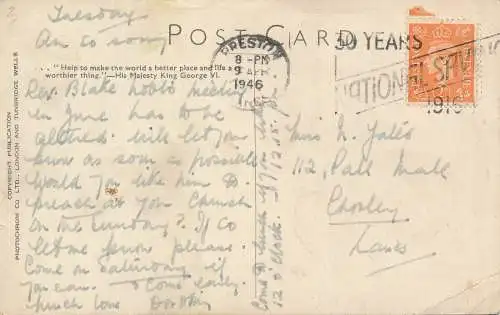 Tuesday
POST CARD
An so sorry
"Help to make the world a better place and life a
worthier thing."—His Majesty King George VI.
Rev. Blake
meeting
in June has to be
altered will let you
know as soon as possible
Would you like him to
preach at you Church
on the Sunday? If so
let me know please.
Come on Saturday if
you can. & come early.
much love Dorothy
COPYRIGHT PUBLICATION
PHOTOCHROM CO LTD., LONDON AND TUNBRIDGE WELLS
Come to lunch if you
12 o'clock.
PRESTON
8-PM
9 APR
1946
30 YEARS
NATIONAL SAVING
1916
Miss N. Yates
112, Pall Mall
Chorley
Lancs